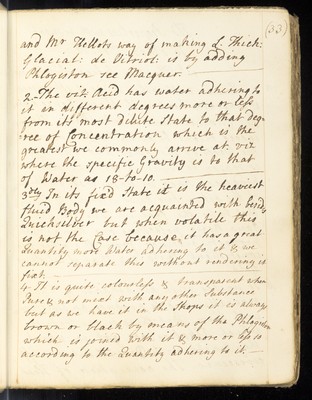 (33)
and Mr Hellots way of making L: Thick:
Glacial: de Vitriol: is by adding
Phlogiston see Macquer.
2. The vit: Acid has water adhering to
it in different degrees more or less
from its most dilute State to that deg-
ree of Concentration which is the
greatest we commonly arrive at. viz
where the specific Gravity is to that
of Water as 18-to-10.
3dly In its fixd State it is the heaviest
fluid Body we are acquainted with besides
Quicksilver but when volatile this
is not the Case because it has a great
Quantity more Water adhering to it & we
cannot separate this without rendering it
fixt.
4. It is quite colourless & transparent when
Pure & not meet with any other Substance
but as we have it in the Shops it is always
brown or black by means of the Phlogiston
which is joined with it & more or less so
according to the Quantity adhering to it.